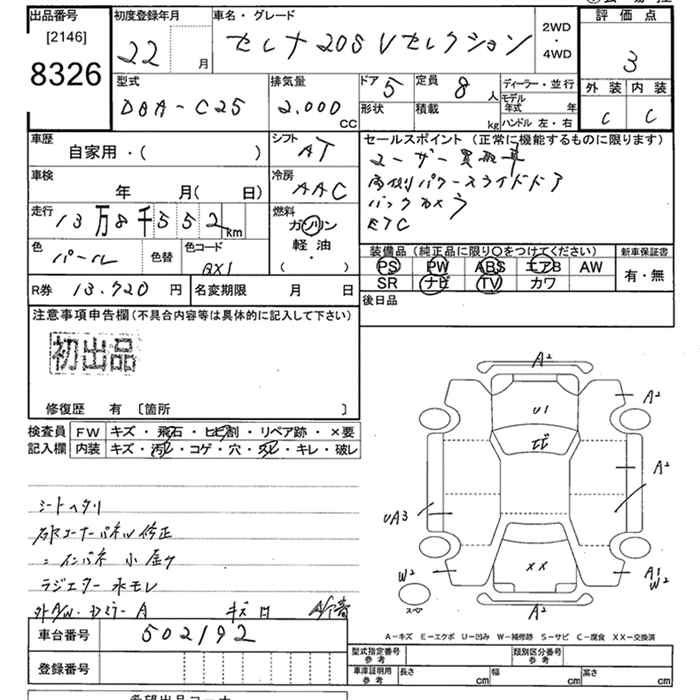 出品番号
[2146]
8326
初度登録年月
22 月
車名・グレード
セレナ 20S Vセレクション
2WD
・
4WD
評価点
3
外装 内装
C C
型式
DBA-C25
排気量
2.000
CC
ドア 5
形状
定員 8 人
積載 kg
ディーラー・並行
モデル年式 年
ハンドル 左・右
車歴
自家用・( )
シフト
AT
車検
年 月( 日)
冷房
AAC
走行
13万8千552km
燃料
ガソリン
軽油
( ・ )
色
パール
色替
色コード
QX1
R券 13.920 円
名変期限 月 日
セールスポイント (正常に機能するものに限ります)
ユーザー買取車
両側パワースライドドア
バックカメラ
ETC
装備品 (純正品に限り○をつけてください)
PS PW ABS エアB AW
SR ナビ TV カワ
新車保証書
有・無
後日品
注意事項申告欄(不具合内容等は具体的に記入して下さい)
初出品
修復歴 有 [箇所 ]
検査員
記入欄
FW キズ・飛石・ヒビ割・リペア跡・×要
内装 キズ・汚れ・コゲ・穴・スレ・キレ・破レ
シートヘタリ
右Rコーナーパネル修正
〃インパネ 小金ケ
ラジエター水モレ
A²
U1
A²
A²
UA3
XX
W²
A1
W²
スペア
A²
A-キズ E-エクボ U-凹み W-補修跡 S-サビ C-腐食 XX-交換済
車台番号 502192
登録番号
型式指定番号
参考
類別区分番号
参考
車庫証明用
参考
長さ cm
幅 cm
高さ cm
希望出品コーナー